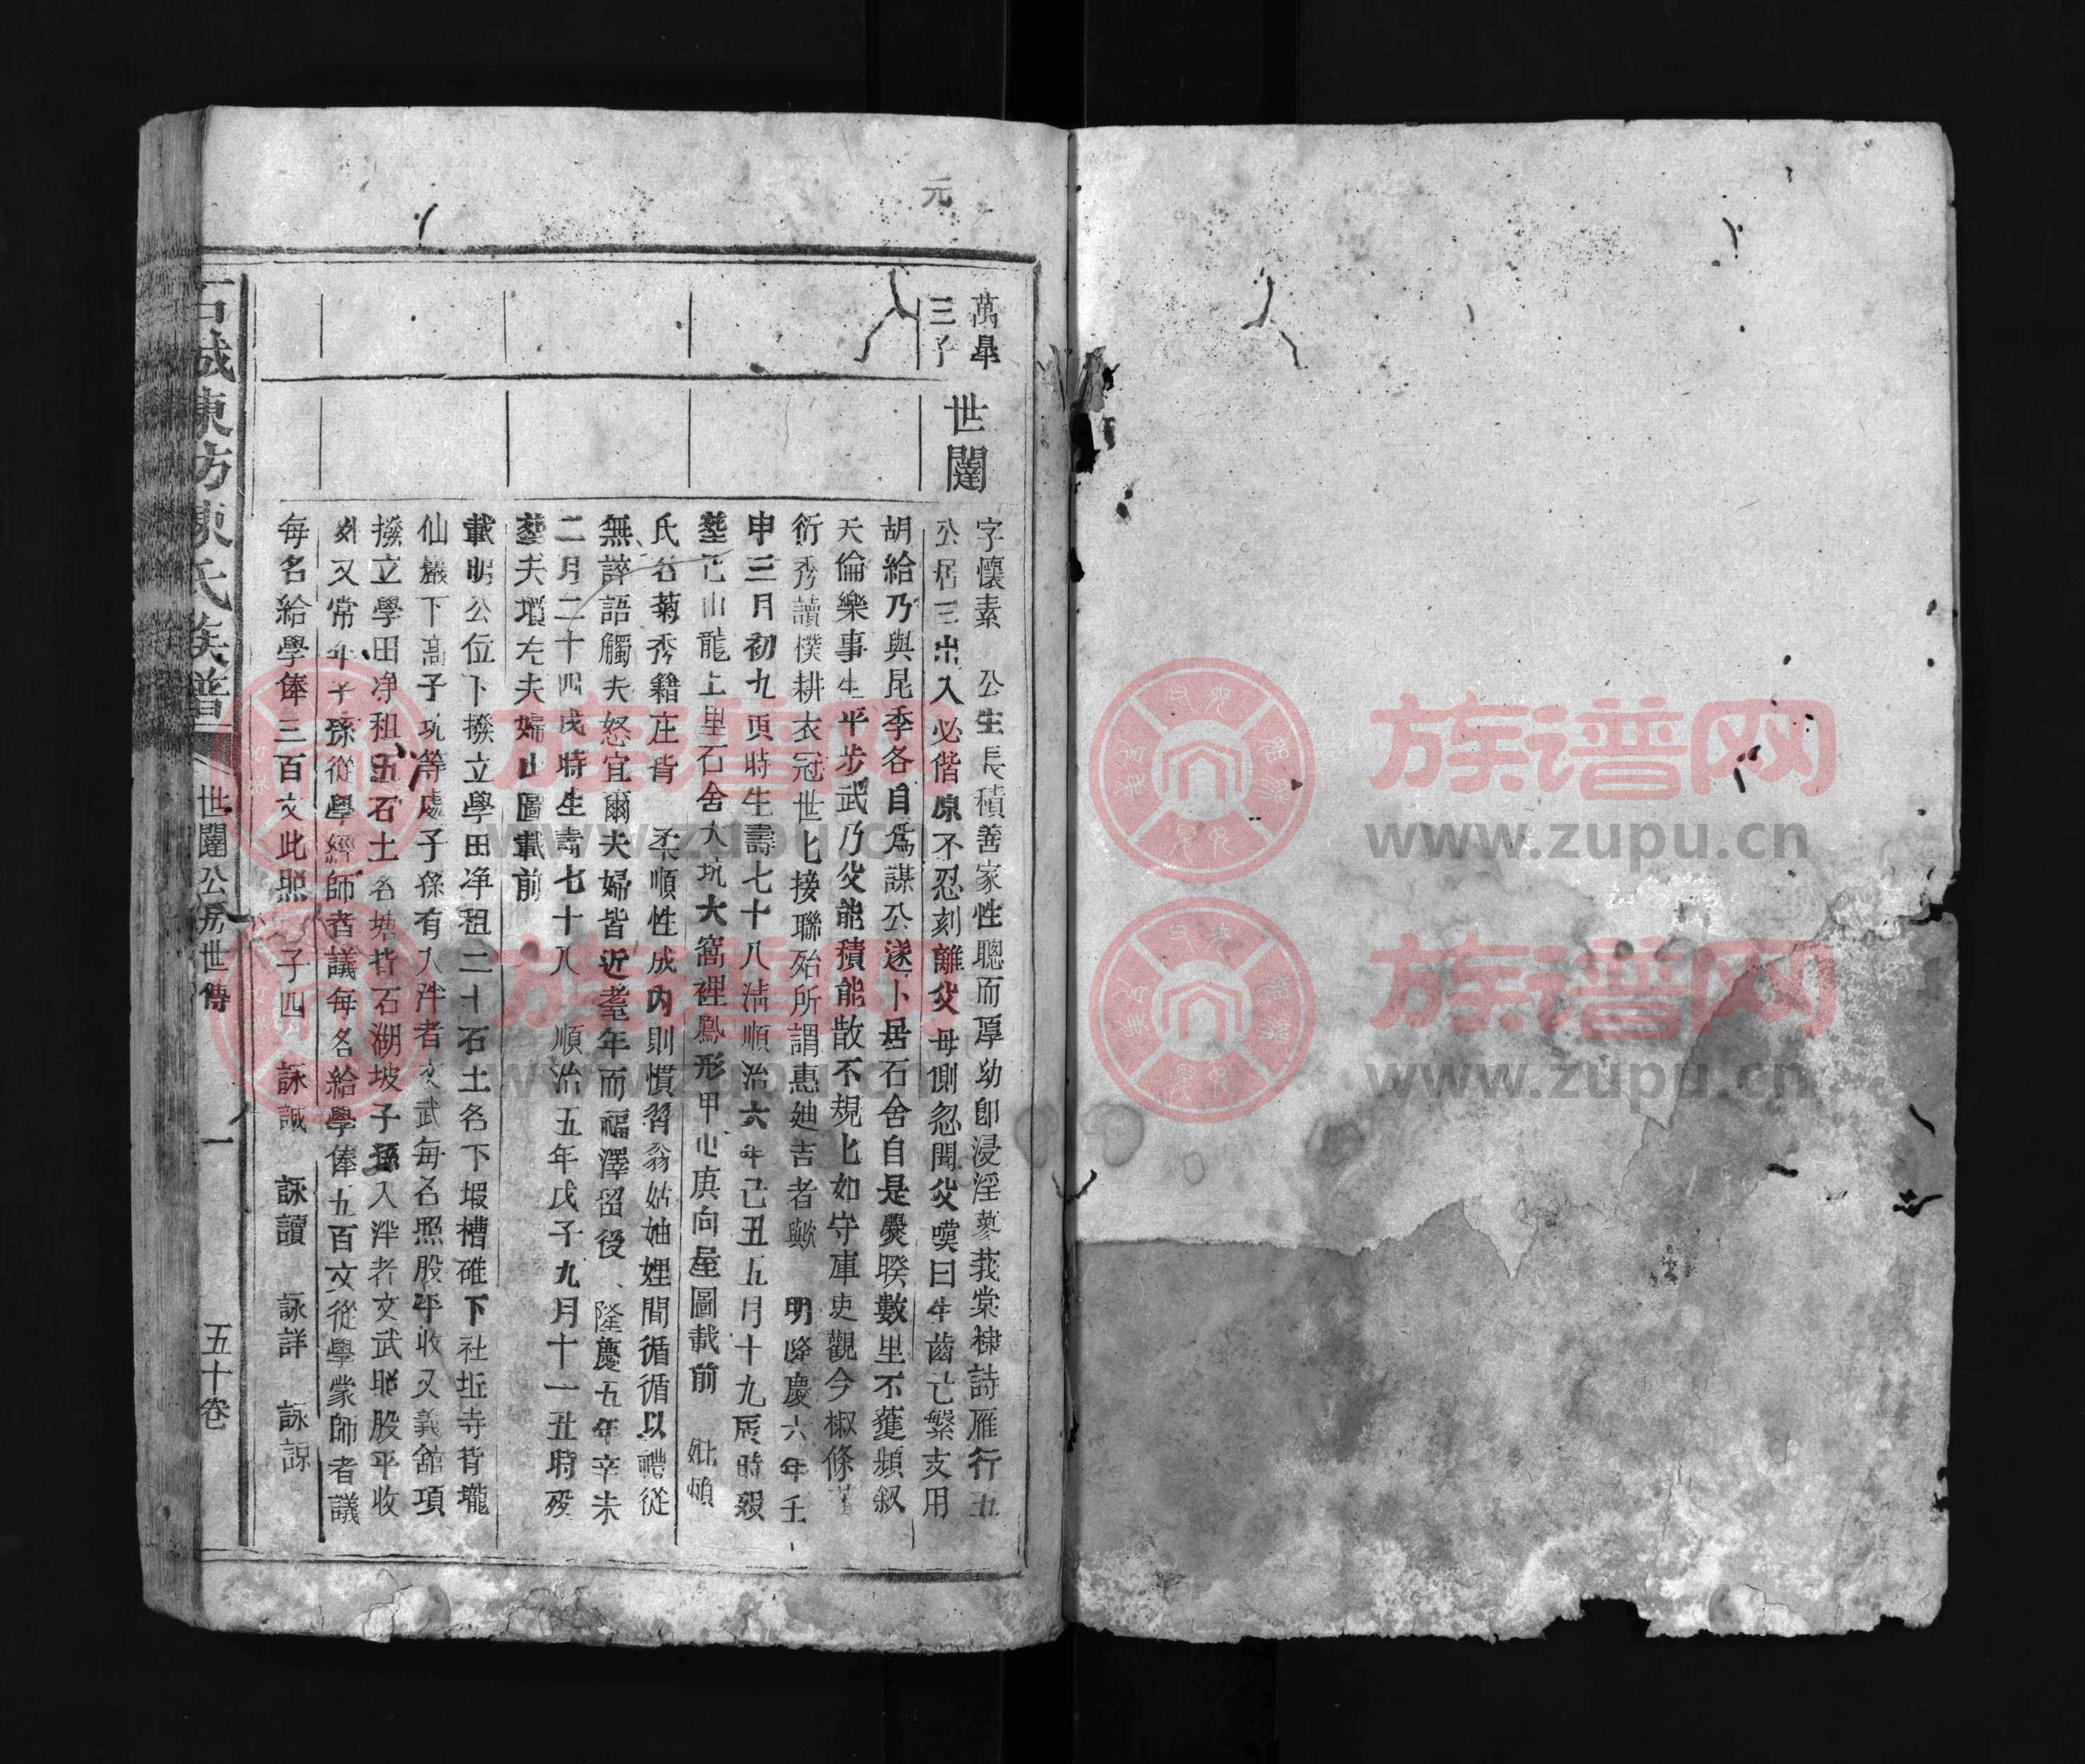 元
萬㫤
三子
世闥
字懷素 公生長積善家性聰而厚幼卽浸淫蓼莪棠棣詩雁行五
公居三出入必偕原不忍刻離父母側忽聞父嘆曰生齒已繁支用
胡給乃與昆季各自爲謀公遂卜居石舍自是爨暌數里不蓰頻叙
天倫樂事生平步武乃父能積能散不規匕如守庫吏觀今椒條
衍秀讀樸耕衣冠世匕接聯殆所謂惠廸吉者歟 明隆慶六年壬
申三月初九頁時生壽七十八淸順治六年己丑五月十九辰時歿
塟己山龍上里石舍大坑大窩裡鳳形甲山庚向屋圖載前 妣賴
氏名菊秀籍庄背 柔順性成內則慣習翁姑妯娌間循循以禮從
無誶語觸夫怒宜爾夫婦皆近耄年而福澤留後 隆慶五年辛未
二月二十四戌時生壽七十八 順治五年戊子九月十一丑時歿
塟夫墳左夫婦山圖載前
載明公位下撥立學田净租二十石土名下塅槽碓下社坵寺背壠
仙巖下高子坑等處子孫有入泮者文武每名照股平收又義舘項
撥立學田净租五石土名塘背石湖坡子孫入泮者文武照股平收
外又常年子孫從學經師者議每名給學俸九百文從學蒙師者議
每名給學俸三百文此照 子四 詠誠 詠讀 詠詳 詠諒
石城東坊陳氏族譜
世闥公房世傳
一
五十卷
族谱网
www.zupu.cn
族谱网
www.zupu.cn
族谱网
www.zupu.cn
族谱网
www.zupu.cn